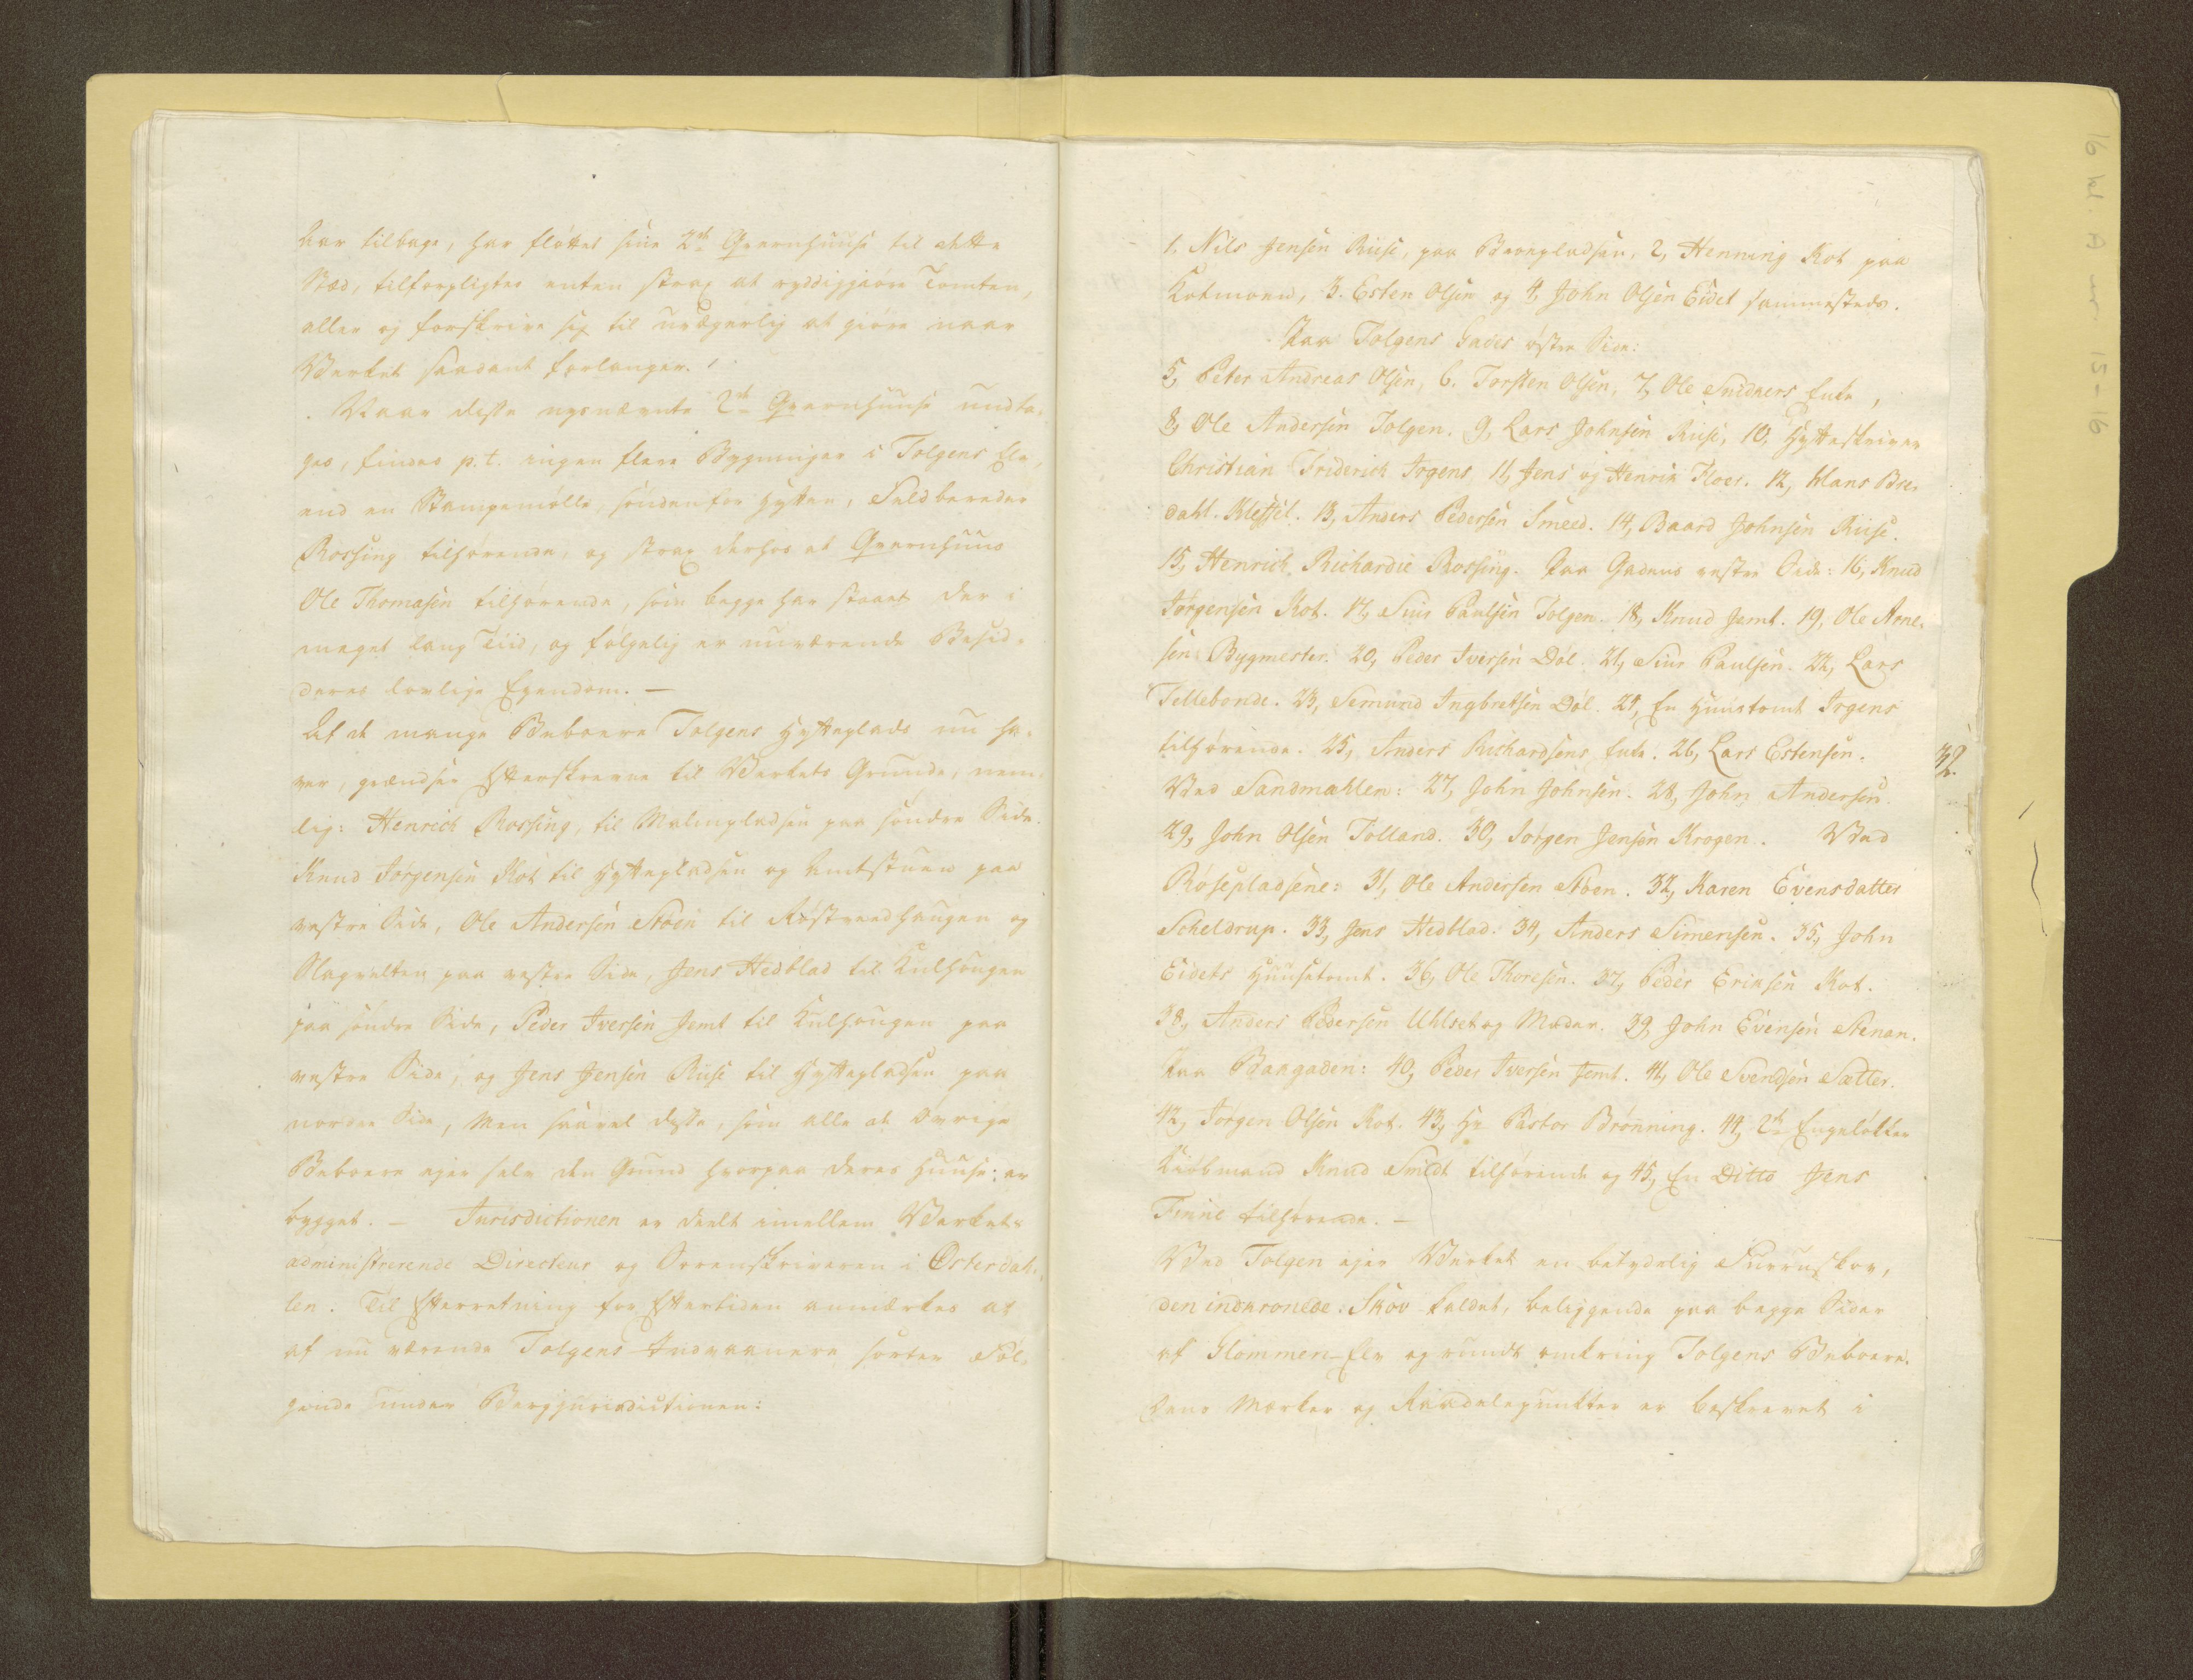 Aar tilbage, har flöttet sine 2de Qvernhuuse til dette
Stæd, tilforpligtes enten strax at ryddiggjøre Tomten,
eller og forskrive sig til uvægerlig at giöre naar
Verket saadant forlanger.
Naar disse nysnævnte 2de Qvernhuuse undta-
ges, findes p.t. ingen flere Bygninger i Tolgens Elv,
end en Stampemölle, söndenfor Hytten, Feldbereder
Rossing tilhörende, og strax derhos et Qvernhuus
Ole Thomasen tilhörende, som begge har staaet der i
meget lang Tiid, og fölgelig er nuværende Besid-
deres lovlige Ejendom. —
Af de mange Beboere Tolgens Hytteplads nu ha-
ver, grændser Efterskrevne til Verkets Grunde, nem-
lig: Henrich Rossing, til Malmpladsen paa söndre Side.
Knud Jörgensen Kot til Hyttepladsen og Amtstuen paa
vestre Side, Ole Andersen Stöen til Röstvendhaugen og
Slagvelten paa vestre Side, Jens Hedblad til Kulhougen
paa söndre Side, Peder Iversen Jemt til Kulhougen paa
vestre Side, og Jens Jensen Ruse til Hyttepladsen paa
nordre Side, Men saavel disse, som alle de övrige
Beboere ejer selv den Grund hvorpaa deres Huuse er
bygget. — Jurisdictionen er deelt imellem Verkets
administrerende Directeur og Sorenskriveren i Österdah-
len. Til Efterretning for Eftertiden anmærkes at
af nu værende Tolgens Indvaanere sorter Föl-
gende under Bergjurisdictionen:
1. Nils Jensen Ruse, paa Bergpladsen, 2, Henning Kot paa
Kotmoen, 3. Esten Olsen og 4, John Olsen Eidet sammesteds.
Paa Tolgens Gades östre Side:
5, Peter Andreas Olsen, 6. Torsten Olsen, 7, Ole Snidkers Enke,
8, Ole Andersen Tolgen. 9, Lars Johnsen Ruse, 10, Hytteskriver
Christian Friderich Irgens 11, Jens og Henrik Floer. 12, Hans Bre-
dahl Klessel. 13, Anders Pedersen Smeed. 14, Baard Johnsen Ruse.
15, Henrich Richardie Rossing. Paa Gadens vestre Side: 16, Knud
Jörgensen Kot. 17, Siur Paulsen Tolgen. 18, Knud Jemt. 19, Ole Arne-
sen Bygmester. 20, Peder Iversen Döl. 21, Siur Paulsen. 22, Lars
Tellebonde. 23, Semund Ingbretsen Döl. 24, En Huustomt Irgens
tilhörende. 25, Anders Richardsens Enke. 26, Lars Estensen.
32.
Ved Sandmælen: 27, John Johnsen. 28, John Andersen.
29, John Olsen Tolland. 30, Jörgen Jensen Krogen. Ved
Rösepladsene: 31, Ole Andersen Stöen. 32, Karen Evensdatter
Scheldrup. 33, Jens Hedblad. 34, Anders Simensen. 35, John
Eidets Huusetomt. 36, Ole Thoresen. 37, Peder Eriksen Kot.
38, Anders Pedersen Uhlset og Moder. 39, John Evensen Stenan.
Paa Bakgaden: 40, Peder Iversen Jemt. 41, Ole Svendsen Sætter.
42, Jörgen Olsen Kot. 43, Hr Pastor Brönning. 44, 2de Engelökker
Kiöbmand Knud Smidt tilhörende og 45, En Ditto Jens
Finne tilhörende. —
Ved Tolgen ejer Verket en betydelig Furruskov,
den indkronede Skov kaldet, beliggende paa begge Sider
af Glommen-Elv og rundt omkring Tolgens Beboere.
Dens Merker og Raadelepunkter er beskrevet i
16 kl. A nr 15-16